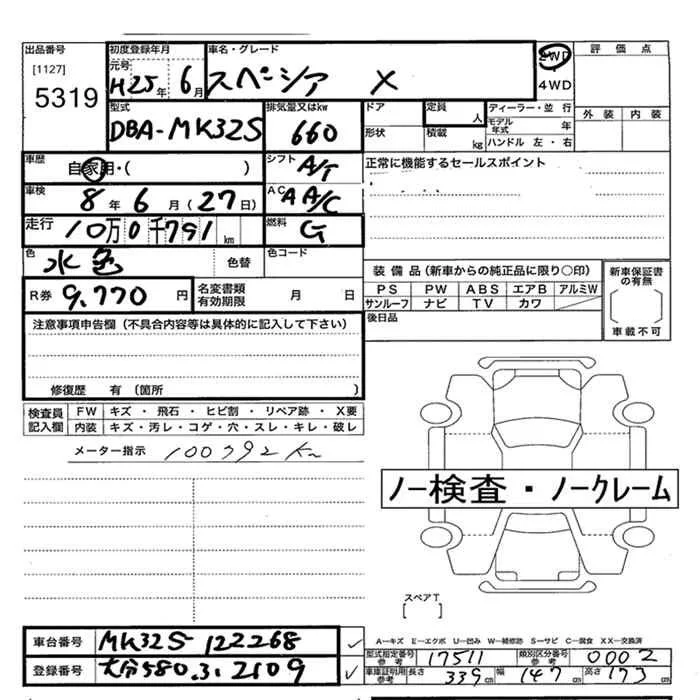 出品番号 初度登録年月 車名・グレード 2WD 評価点
[1127] 元号
5319 H25年 6月 スペーシア X 4WD
型式 排気量又はkw ドア 定員 人 ディーラー・並行 外装 内装
DBA-MK32S 660 形状 積載 kg モデル年式 年
ハンドル 左・右
車歴 自家用・( ) シフト A/T 正常に機能するセールスポイント
車検 8年 6月 (27日) AC AA/C
走行 10万0千791km 燃料 G
色 水色 色替 色コード
装備品(新車からの純正品に限り○印) 新車保証書の有無
R券 9,770円 名変書類有効期限 月 日 PS PW ABS エアB アルミW
サンルーフ ナビ TV カワ
( )
車載不可
注意事項申告欄(不具合内容等は具体的に記入して下さい) 後日品
修復歴 有 (箇所 )
検査員記入欄 FW キズ・飛石・ヒビ割・リペア跡・X要
内装 キズ・汚レ・コゲ・穴・スレ・キレ・破レ
メーター指示 100792km
ノー検査・ノークレーム
スペアT
[ ]
A―キズ E―エクボ U―凹み W―補修跡 S―サビ C―腐食 XX―交換済
車台番号 MK32S-122268 ✓ 型式指定番号 参考 17511 類別区分番号 参考 0002
登録番号 大分580.3.2109 ✓ 車庫証明用 参考 長さ 339cm 幅 147cm 高さ 173cm